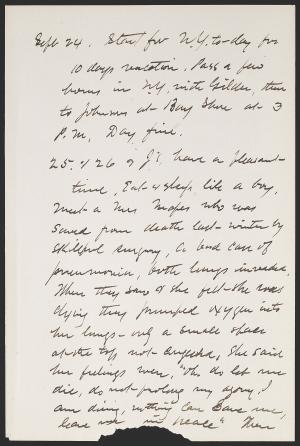 Sept 24. Start for N.Y. to-day for
10 days vacation. Pass a few
hours in N.Y. with Gilder, then
to Johnsons at Bay Shore at 3
P.M. Day fine.
25 & 26 & 27, have a pleasant
time, Eat & sleep like a boy,
Meet a Mrs Mapes who was
saved from death last winter by
skilful surgery, a bad case of
pneumonia, both lungs invaded.
When they saw & she felt she was
dying they pumped oxygen into
her lungs - only a small space
at the top not congested, She said
her feelings were, "Oh do let me
die, do not prolong my agony, I
am dying, nothing can save me,
leave me in peace" Then